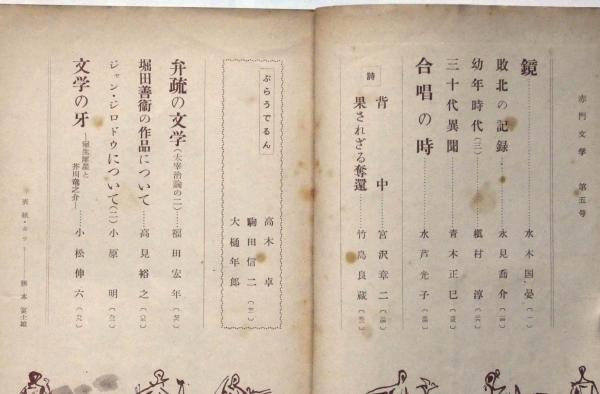 赤門文学 第五号
鏡 水木国晏
敗北の記録 永見喬介
幼年時代(三) 槇村淳
三十代異聞 青木正巳
合唱の時 水芦光子
詩
背中 宮沢章二
果されざる奪還 竹島良蔵
ぷらうでるん
高木卓
駒田信二
大樋年郎
弁疏の文学(太宰治論の二) 福田宏年
堀田善衞の作品について 高見裕之
ジャン・ジロドウについて(二) 小原明
文学の牙 小松伸六
芥川竜之介
表紙・カット